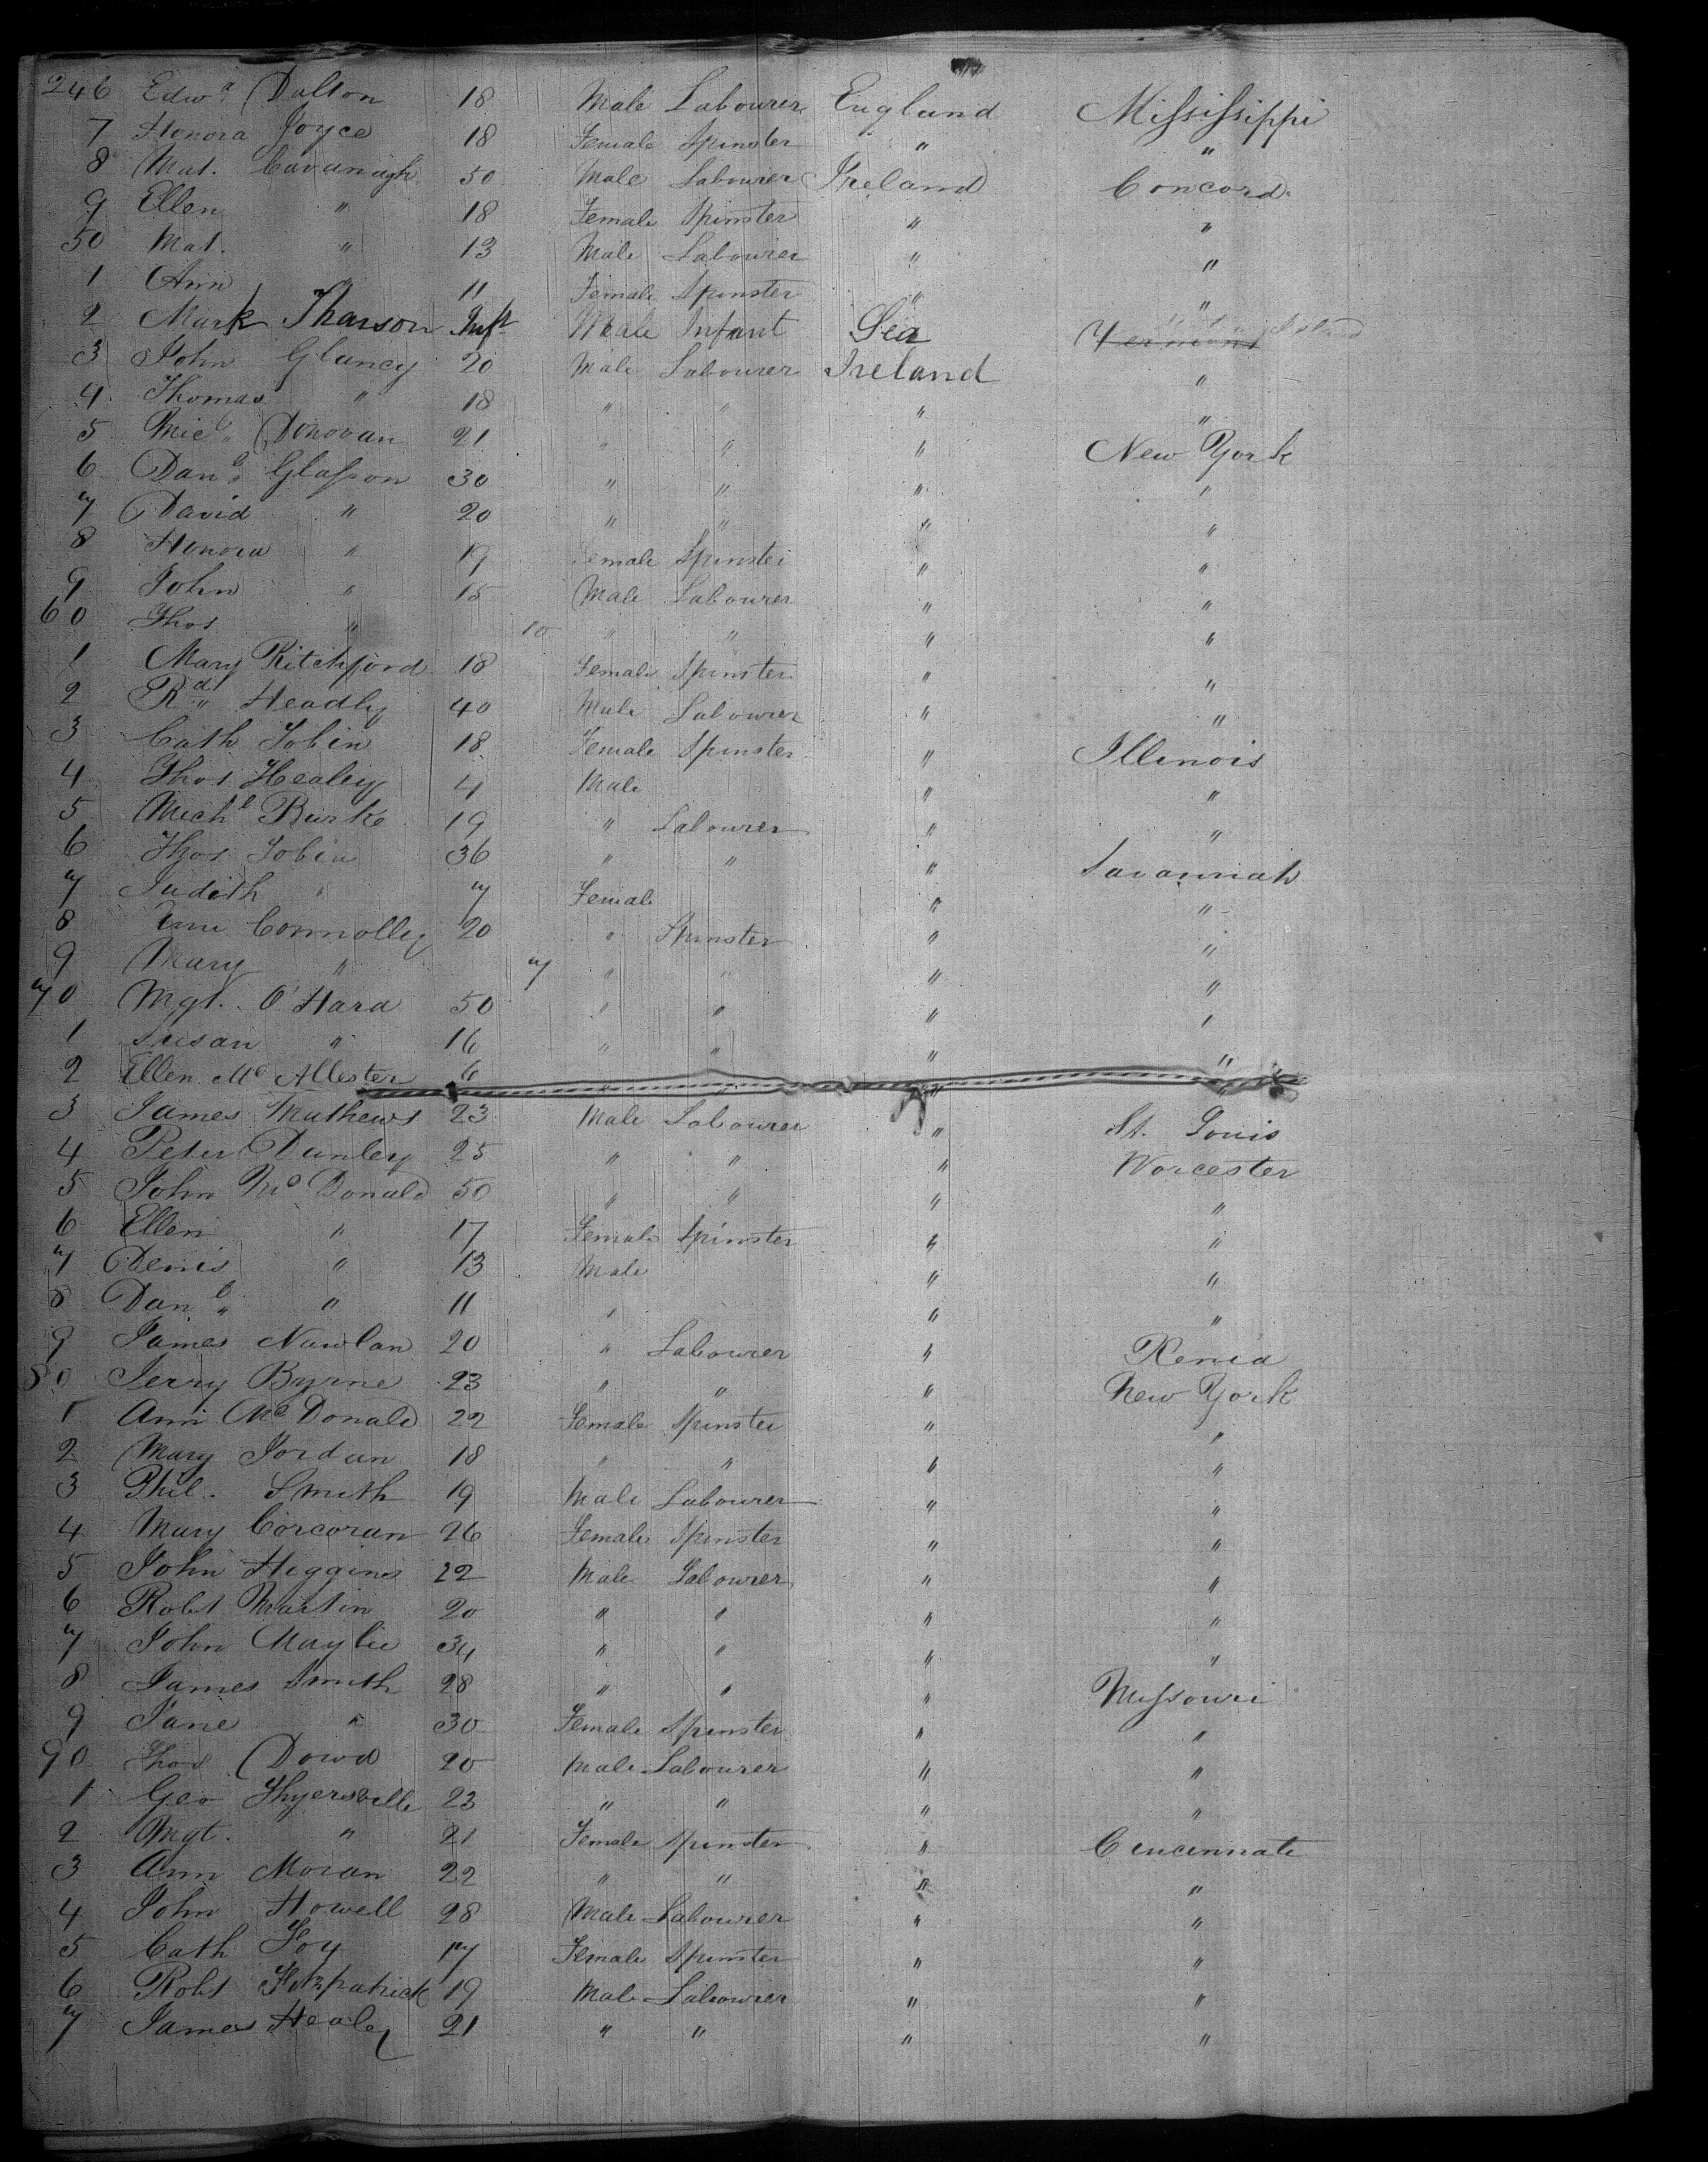 246 Edwd Dalton 18 Male Labourer England Mississippi
7 Honora Joyce 18 Female Spinster " "
8 Mat. Cavanagh 50 Male Labourer Ireland Concord
9 Ellen " 18 Female Spinster " "
50 Mat. " 13 Male Labourer " "
1 Ann " 11 Female Spinster " "
2 Mark Tharson Inft Male Infant Sea Vermont
3 John Glancy 20 Male Labourer Ireland "
4 Thomas " 18 " " " "
5 Micl. Donovan 21 " " " New York
6 Danl. Glasson 30 " " " "
7 David " 20 " " " "
8 Honora " 19 Female Spinster " "
9 John " 15 Male Labourer " "
60 Thos " 10 " " " "
1 Mary Ritchford 18 Female Spinster " "
2 Rd. Headly 40 Male Labourer " "
3 Cath Tobin 18 Female Spinster " Illinois
4 Thos Healey 4 Male " "
5 Michl Burke 19 " Labourer " "
6 Thos Tobin 36 " " " Savannah
7 Judith " 7 Female " "
8 Ann Connolley 20 " Spinster " "
9 Mary " 7 " " " "
70 Mgt. O'Hara 50 " " " "
1 Susan " 16 " " " "
2 Ellen Mc Allester 6 " " " "
3 James Mathews 23 Male Labourer " St. Louis
4 Peter Dunley 25 " " " Worcester
5 John Mc Donald 50 " " " "
6 Ellen " 17 Female Spinster " "
7 Denis " 13 Male " "
8 Danl. " 11 " " "
9 James Nawlan 20 " Labourer " Renia
80 Jerry Byrne 23 " " " New York
1 Ann Mc Donald 22 Female Spinster " "
2 Mary Jordan 18 " " " "
3 Phil. Smith 19 Male Labourer " "
4 Mary Corcoran 26 Female Spinster " "
5 John Higgins 22 Male Labourer " "
6 Robt Martin 20 " " " "
7 John Maylie 34 " " " "
8 James Smith 28 " " " Missouri
9 Jane " 30 Female Spinster " "
90 Thos Dowd 20 Male Labourer " "
1 Geo Thyersville 23 " " " "
2 Mgt. " 21 Female Spinster " Cincennate
3 Ann Moran 22 " " " "
4 John Howell 28 Male Labourer " "
5 Cath Foy 17 Female Spinster " "
6 Robt Fitzpatrick 19 Male Labourer " "
7 James Healey 21 " " " "